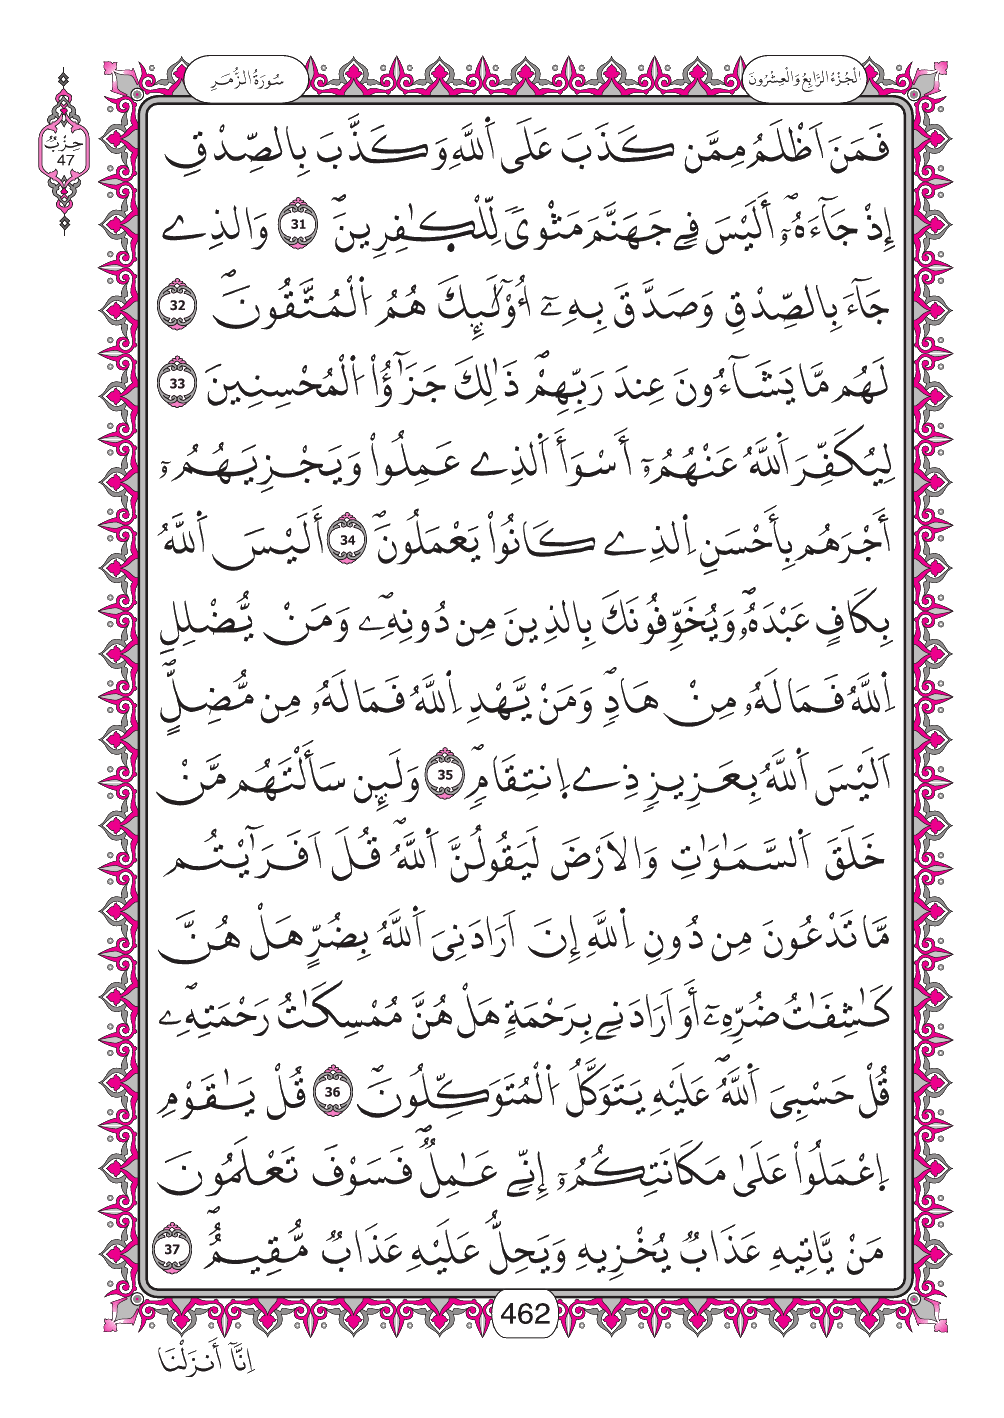 سُورَةُ الزُّمَرِ
الْجُزْءُ الرَّابِعُ وَالْعِشْرُونَ
حِزْبٌ
47
فَمَنَ اَظْلَمُ مِمَّن كَذَبَ عَلَى اَ۬للَّهِ وَكَذَّبَ بِالصِّدْقِ
إِذْ جَآءَهُۥٓۖ أَلَيْسَ فِے جَهَنَّمَ مَثْوىٗ لِّلْكٰ۪فِرِينَۖ 31 وَالذِے
جَآءَ بِالصِّدْقِ وَصَدَّقَ بِهِۦٓ أُوْلَٰٓئِكَ هُمُ اُ۬لْمُتَّقُونَۖ 32
لَهُم مَّا يَشَآءُونَ عِندَ رَبِّهِمْۖ ذَٰلِكَ جَزَٰٓؤُاْ اُ۬لْمُحْسِنِينَ 33
لِيُكَفِّرَ اَ۬للَّهُ عَنْهُمُۥٓ أَسْوَأَ اَ۬لذِے عَمِلُواْ وَيَجْزِيَهُمُۥٓ
أَجْرَهُم بِأَحْسَنِ اِ۬لذِے كَانُواْ يَعْمَلُونَۖ 34 أَلَيْسَ اَ۬للَّهُ
بِكَافٍ عَبْدَهُۥۖ وَيُخَوِّفُونَكَ بِالذِينَ مِن دُونِهِۦۖ وَمَنْ يُّضْلِلِ
اِ۬للَّهُ فَمَا لَهُۥ مِنْ هَادٖۖ وَمَنْ يَّهْدِ اِ۬للَّهُ فَمَا لَهُۥ مِن مُّضِلٍّۖ
اَلَيْسَ اَ۬للَّهُ بِعَزِيزٖ ذِے اِ۪نتِقَامٖۖ 35 وَلَئِن سَأَلْتَهُم مَّنْ
خَلَقَ اَ۬لسَّمَٰوَٰتِ وَالَارْضَ لَيَقُولُنَّ اَ۬للَّهُۖ قُلَ اَفَرَٰٓيْتُم
مَّا تَدْعُونَ مِن دُونِ اِ۬للَّهِ إِنَ اَرَادَنِيَ اَ۬للَّهُ بِضُرٍّ هَلْ هُنَّ
كَٰشِفَٰتُ ضُرِّهِۦٓ أَوَ اَرَادَنِے بِرَحْمَةٍ هَلْ هُنَّ مُمْسِكَٰتُ رَحْمَتِهِۦۖ
قُلْ حَسْبِيَ اَ۬للَّهُۖ عَلَيْهِ يَتَوَكَّلُ اُ۬لْمُتَوَكِّلُونَۖ 36 قُلْ يَٰقَوْمِ
اِ۪عْمَلُواْ عَلَىٰ مَكَانَتِكُمُۥٓ إِنِّے عَٰمِلٞۖ فَسَوْفَ تَعْلَمُونَ
مَنْ يَّاتِيهِ عَذَابٞ يُخْزِيهِ وَيَحِلُّ عَلَيْهِ عَذَابٞ مُّقِيمٌۖ 37
462
اِنَّآ أَنزَلْنَا